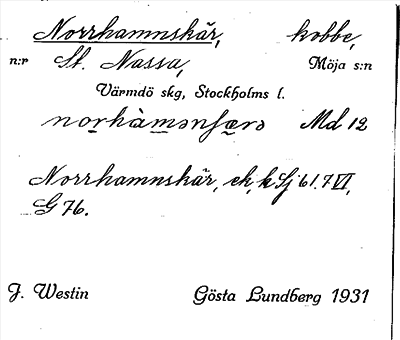 Norrhamnskär, kobbe,
n:r St. Nassa, Möja s:n
Värmdö skg, Stockholms l.
norhàmənʃærə Md 12
Norrhamnskär, ek, k Sj 61. 7 VI,
G 76.
J. Westin Gösta Lundberg 1931